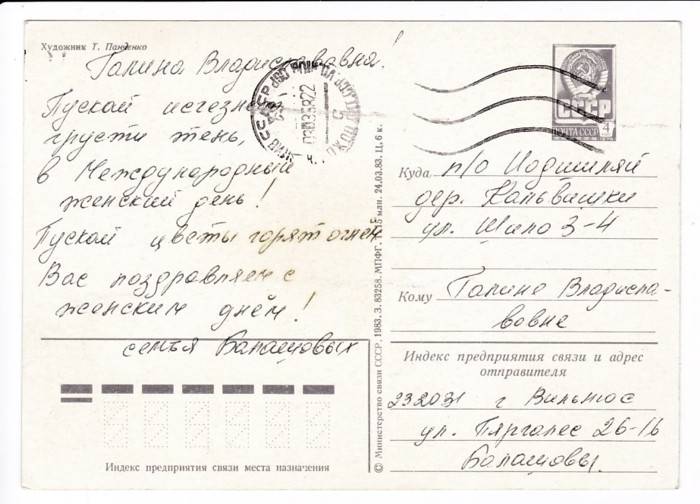 Художник Т. Панченко
Галина Владиславовна!
Пускай исчезнет
грусти тень,
в Международный
женский день!
Пускай цветы горят огнем
Вас поздравляем с
женским днём!
семья Балашовых
Индекс предприятия связи места назначения
© Министерство связи СССР, 1983. З. 83258. МПФГ. 24.03.83. Ц. 6 к.
СССР
ПОЧТА СССР
4
Куда п/о Иодшиляй
дер. Кальвишки
ул. Шило 3-4
Кому Галине Владисла-
вовне
Индекс предприятия связи и адрес
отправителя
232031 г Вильнюс
ул. Пяргалес 26-16
Балашовы.